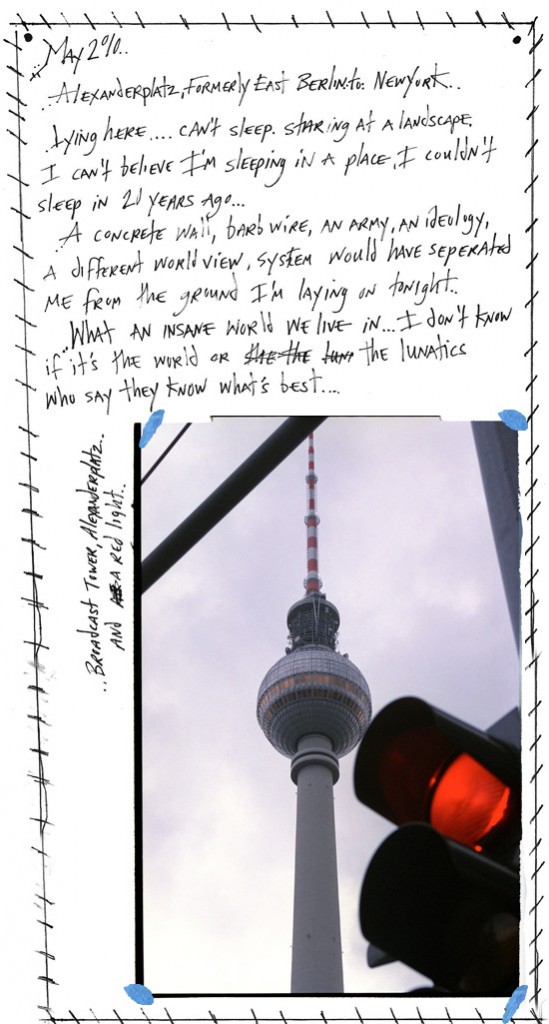 May 2010..
..Alexanderplatz, Formerly East Berlin.to. New York..
Lying here.... can't sleep. staring at a landscape.
I can't believe I'm sleeping in a place, I couldn't
sleep in 20 years ago...
A concrete wall, barb wire, an army, an ideology,
a different world view, system would have seperated
me from the ground I'm laying on tonight..
..What an insane world we live in... I don't know
if it's the world or the lunatics
who say they know what's best....
..Broadcast Tower, Alexanderplatz..
and a red light..